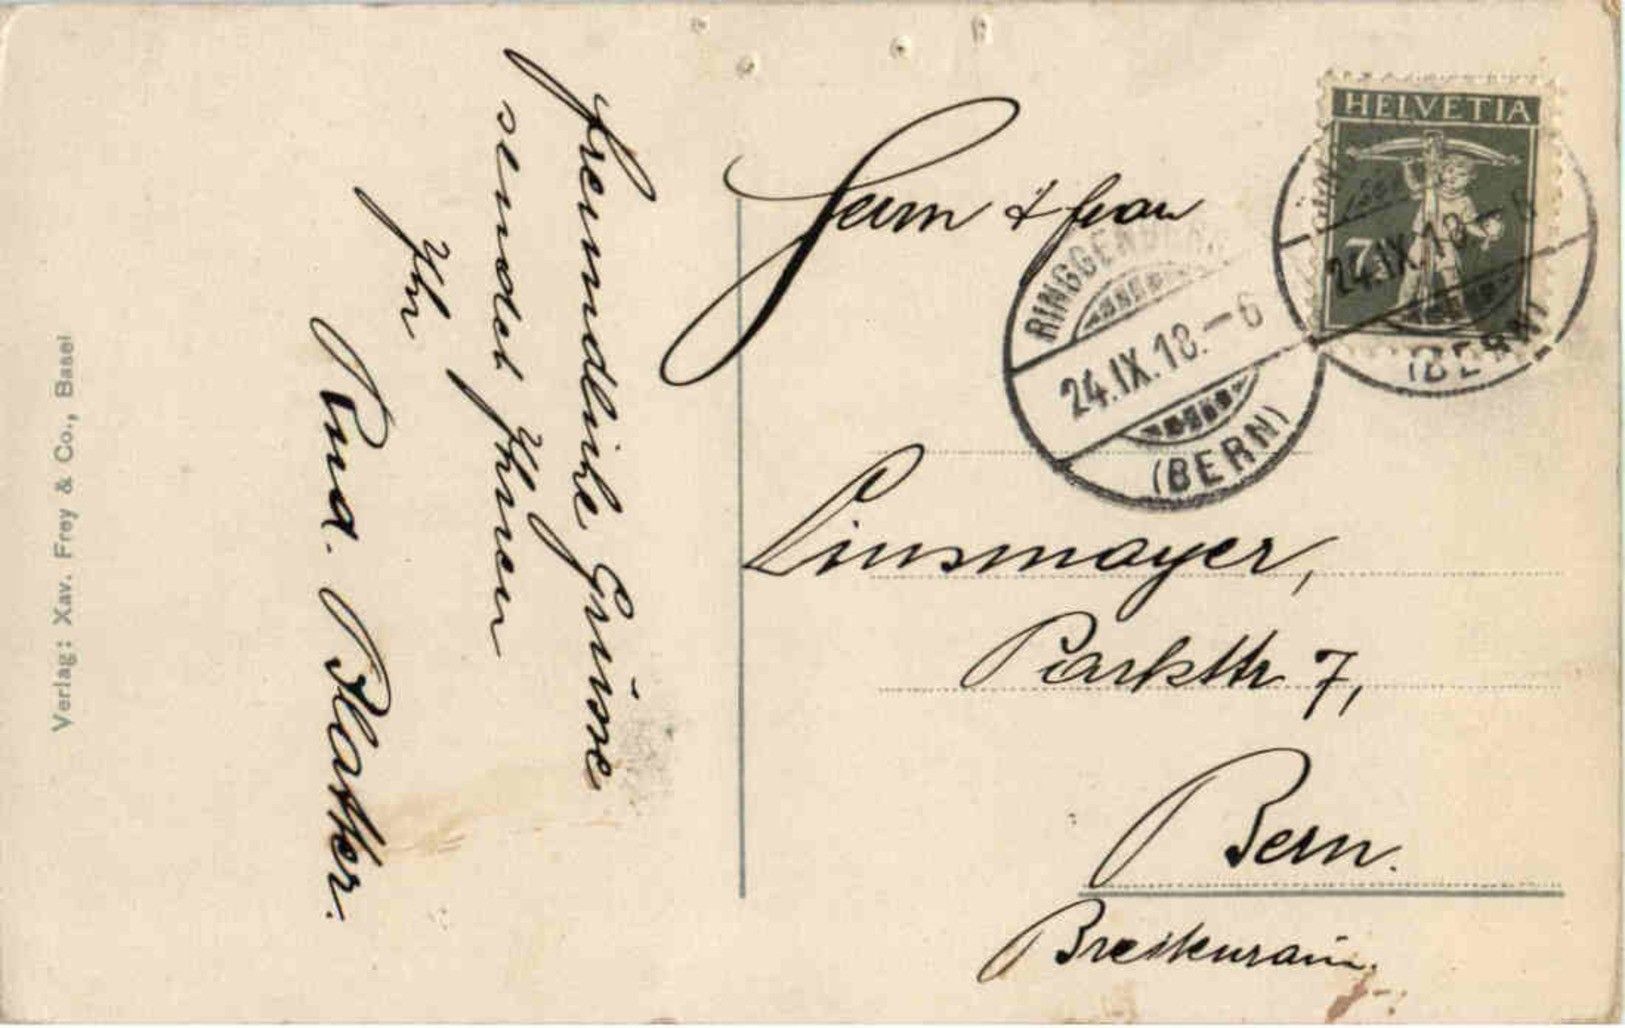 Freundliche Grüsse
sendet Ihnen
Ihr
Rud. Blatter.
Herrn & Frau
Linsmayer,
Parkstr 7,
Bern.
Breitenrain.
HELVETIA
7½
24.IX.18.–6
(BERN)
RINGGENBERG
24.IX.18.–6
(BERN)
Verlag: Xav. Frey & Co., Basel